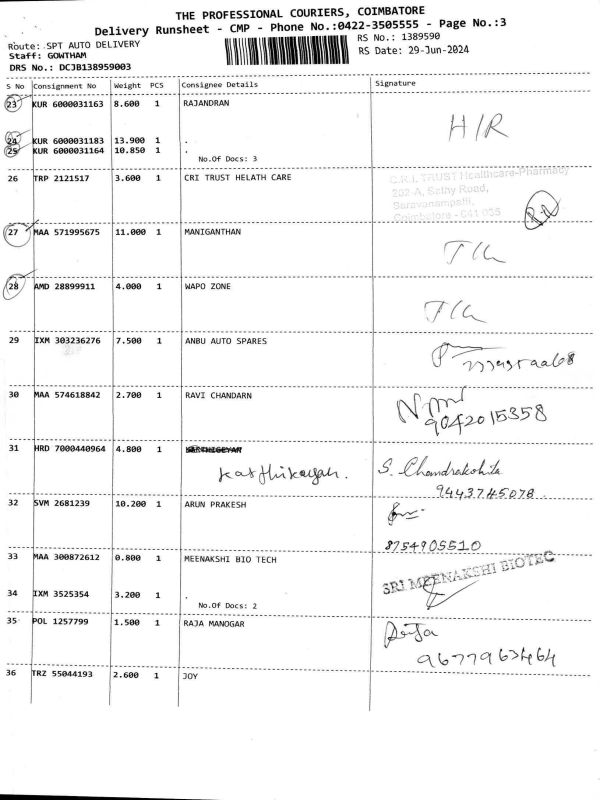 THE PROFESSIONAL COURIERS, COIMBATORE
Delivery Runsheet - CMP - Phone No.:0422-3505555 - Page No.:3
Route: SPT AUTO DELIVERY
RS No.: 1389590
Staff: GOWTHAM
RS Date: 29-Jun-2024
DRS No.: DCJB138959003
S No Consignment No Weight PCS Consignee Details Signature
23 KUR 6000031163 8.600 1 RAJANDRAN
H/R
24 KUR 6000031183 13.900 1 .
25 KUR 6000031164 10.850 1 .
No.Of Docs: 3
26 TRP 2121517 3.600 1 CRI TRUST HELATH CARE
C.R.I. TRUST Healthcare-Pharmacy
202-A, Sathy Road,
Saravanampatti,
Coimbatore - 641 035
27 MAA 571995675 11.000 1 MANIGANTHAN
28 AMD 28899911 4.000 1 WAPO ZONE
29 IXM 303236276 7.500 1 ANBU AUTO SPARES
30 MAA 574618842 2.700 1 RAVI CHANDARN
9042015358
31 HRD 7000440964 4.800 1
Kathikayan. S. Chandrakohila
9443745078
32 SVM 2681239 10.200 1 ARUN PRAKESH
8754905510
33 MAA 300872612 0.800 1 MEENAKSHI BIO TECH
SRI MEENAKSHI BIOTEC
34 IXM 3525354 3.200 1 .
No.Of Docs: 2
35 POL 1257799 1.500 1 RAJA MANOGAR
9677963464
36 TRZ 55044193 2.600 1 JOY